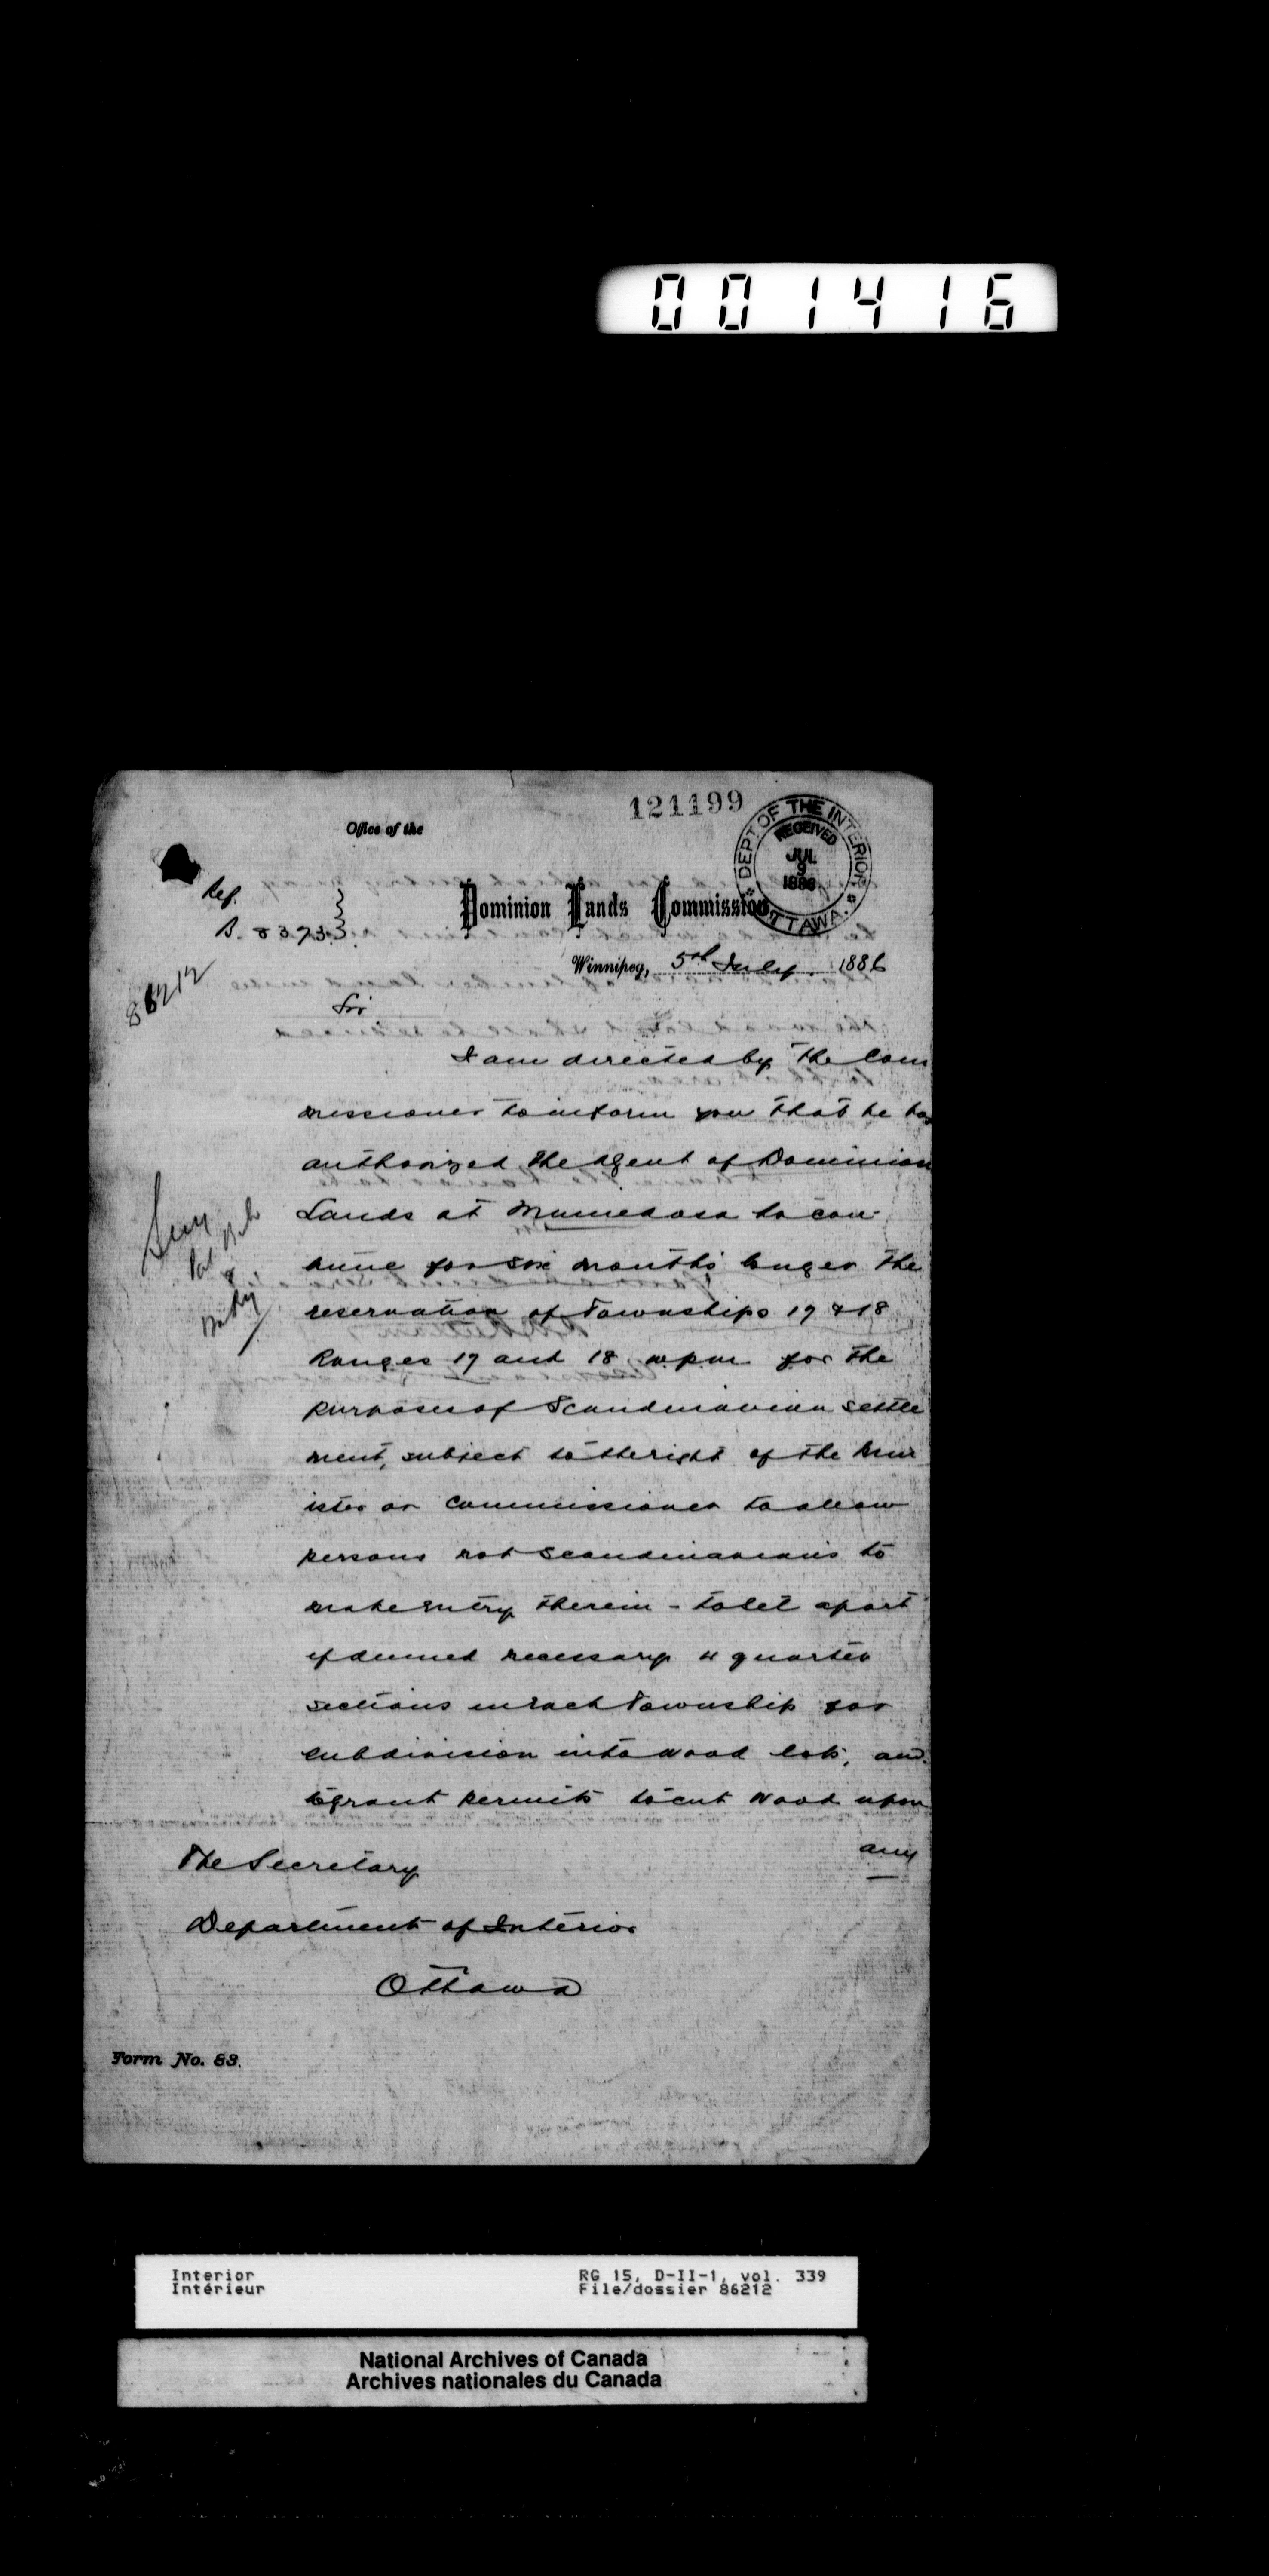 001416
121199
DEPT. OF THE INTERIOR
RECEIVED
JUL
9
1886
OTTAWA.
Office of the
Dominion Lands Commission
Ref.
B. 8373
86212
Winnipeg, 5th July. 1886
Sir
I am directed by the Com
missioner to inform you that he has
authorized the Agent of Dominion
Lands at Minnedosa to con-
tinue for six months longer the
reservation of Townships 17 & 18
Ranges 17 and 18 wpm for the
purposes of Scandinavian settle
ment, subject to the right of the Min
ister or Commissioner to allow
persons not Scandinavians to
make entry therein - to set apart
if deemed necessary 4 quarter
sections in each Township for
subdivision into wood lots, and
to grant permits to cut wood upon
any
The Secretary
Department of Interior
Ottawa
Form No. 83.
Interior
Intérieur
RG 15, D-II-1, vol. 339
File/dossier 86212
National Archives of Canada
Archives nationales du Canada